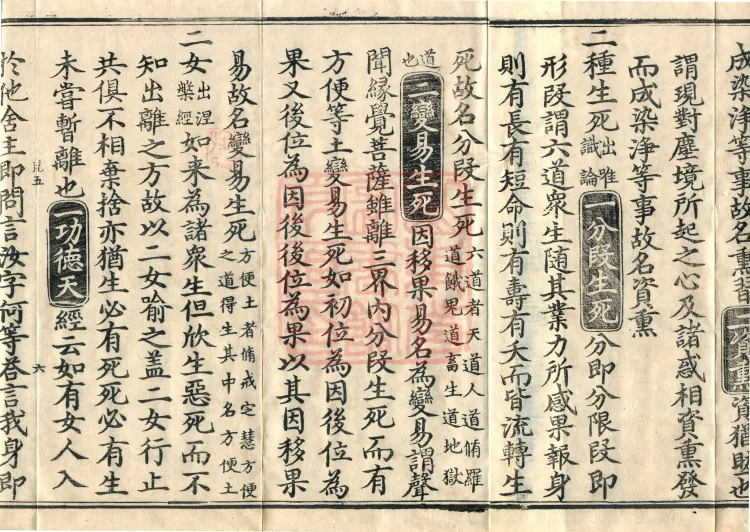 成染淨等事故名熏習二資熏資猶助也
謂現對塵境所起之心及諸惑相資熏發
而成染淨等事故名資熏
二種生死出唯識論一分段生死分即分限段即
形段謂六道眾生隨其業力所感果報身
則有長有短命則有壽有夭而皆流轉生
死故名分段生死六道者天道人道脩羅道餓鬼道畜生道地獄
道也二變易生死因移果易名為變易謂聲
聞緣覺菩薩雖離三界內分段生死而有
方便等土變易生死如初位為因後位為
果又後位為因後後位為果以其因移果
易故名變易生死方便土者脩戒定慧方便之道得生其中名方便土
二女出涅槃經如来為諸衆生但欣生惡死而不
知出離之方故以二女喻之盖二女行止
共俱不相棄捨亦猶生必有死死必有生
未嘗暫離也一功德天經云如有女人入
於他舍主即問言汝字何等荅言我身即
昆五
六